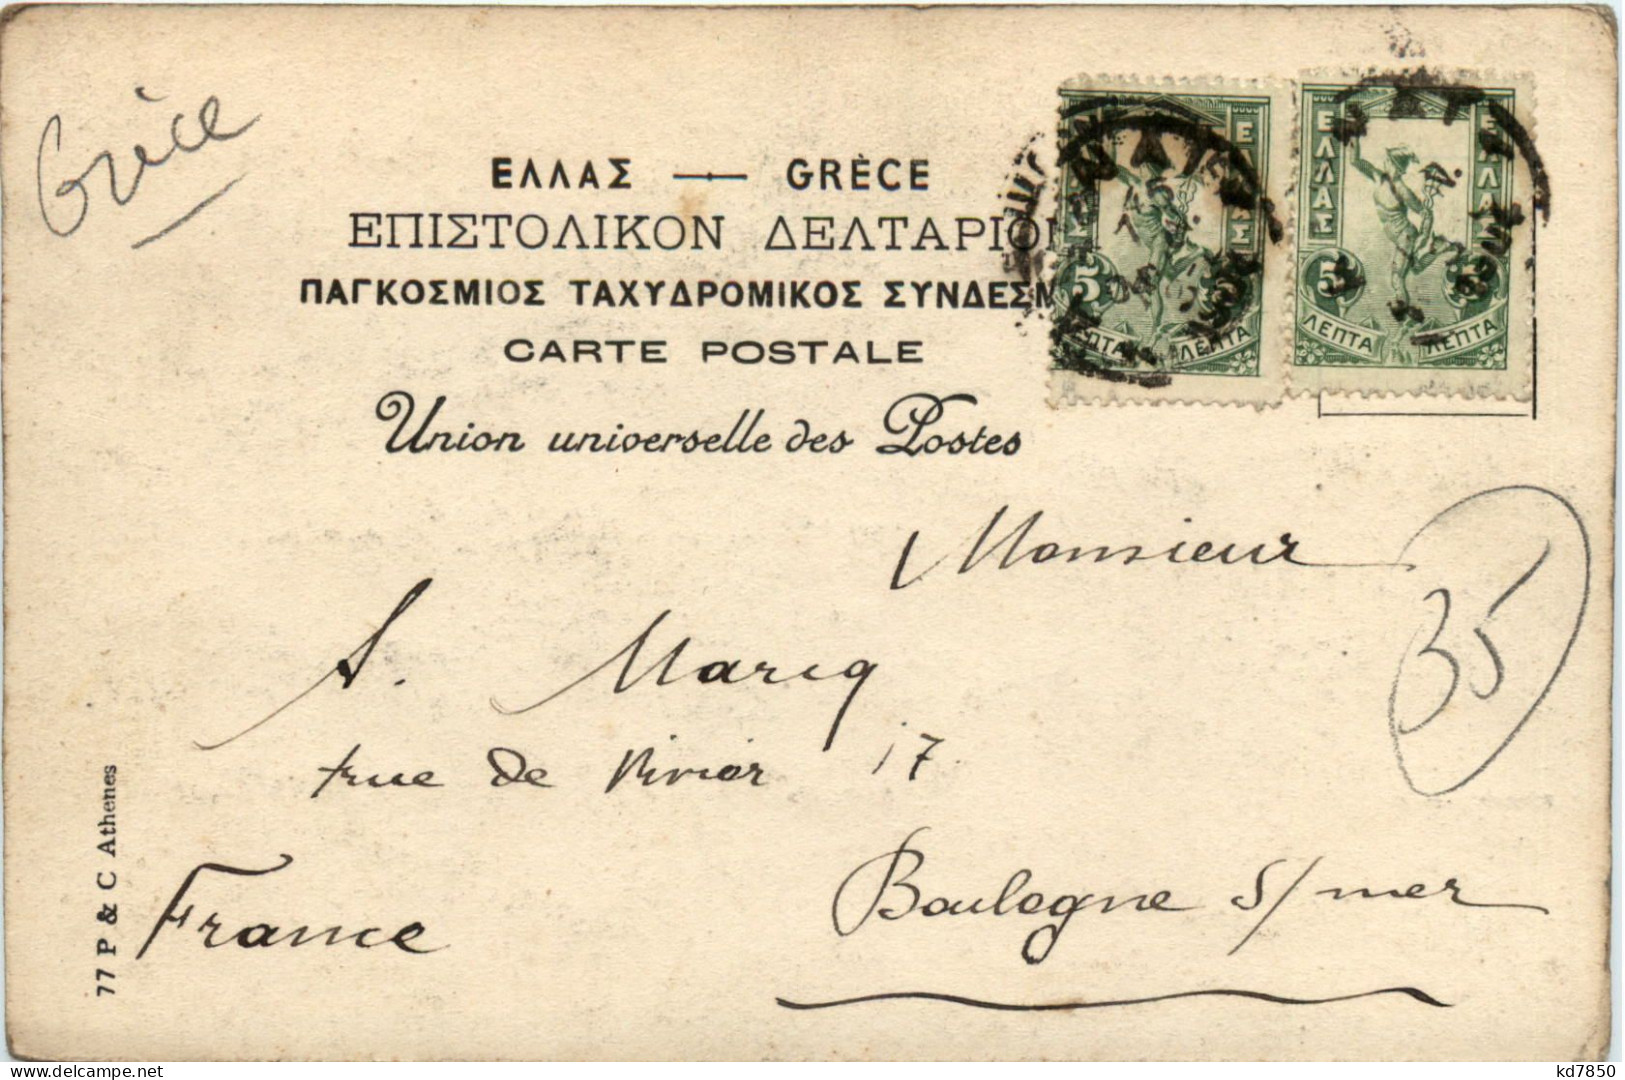 Grèce
ΕΛΛΑΣ — GRÈCE
ΕΠΙΣΤΟΛΙΚΟΝ ΔΕΛΤΑΡΙΟΝ
ΠΑΓΚΟΣΜΙΟΣ ΤΑΧΥΔΡΟΜΙΚΟΣ ΣΥΝΔΕΣΜ
CARTE POSTALE
Union universelle des Postes
ΕΛΛΑΣ
5
ΛΕΠΤΑ ΛΕΠΤΑ
ΕΛΛΑΣ ΕΛΛΑΣ
5 5
ΛΕΠΤΑ ΛΕΠΤΑ
Monsieur
35
A. Marcq
rue de 17
Boulogne s/mer
France
77 P & C Athenes
kd7850